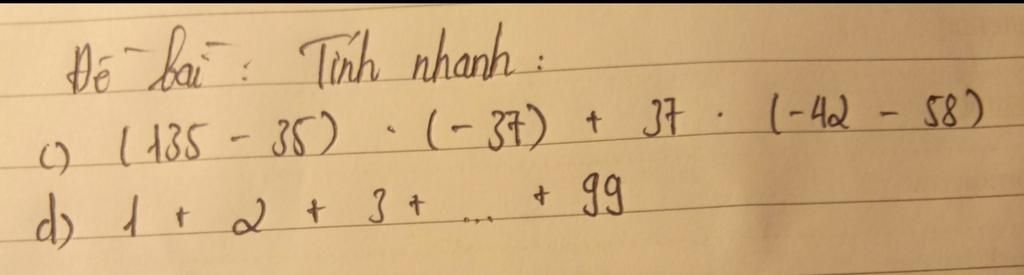 Đề bài : Tính nhanh :
c) (135 - 35) . (-37) + 37 . (-42 - 58)
d) 1 + 2 + 3 + ... + 99